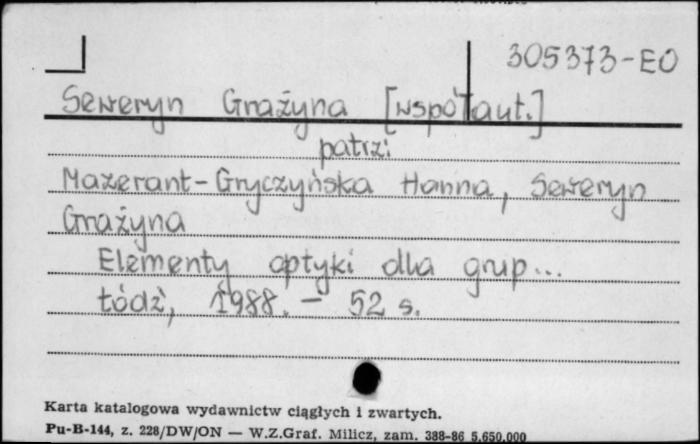 305373-EO
Seweryn Grażyna [współaut.]
patrz:
Mazerant-Gryczyńska Hanna, Seweryn
Grażyna
Elementy optyki dla grup...
Łódź, 1988. – 52 s.
Karta katalogowa wydawnictw ciągłych i zwartych.
Pu-B-144, z. 228/DW/ON — W.Z.Graf. Milicz, zam. 388-86 5.650.000